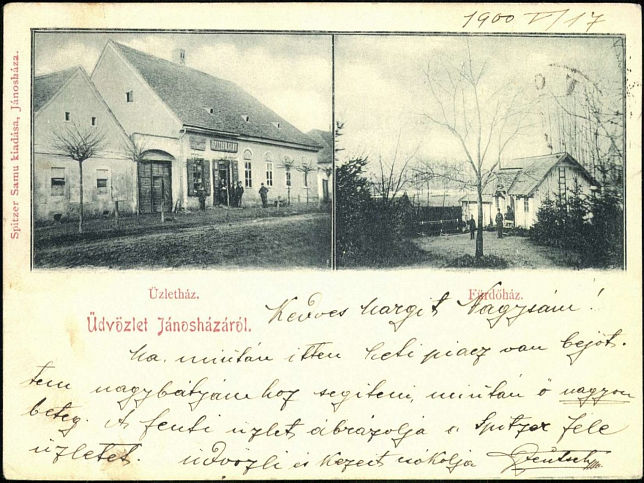 1900 V/17
Spitzer Samu kiadása, Jánosháza.
Üzletház.
Fürdőház.
Üdvözlet Jánosházáról.
Kedves Margit Nagysám!
Ma miután itten heti piacz van bejöt-
tem nagybátyámhoz segíteni, miután ő nagyon
beteg. A fenti üzlet ábrázolja a Spitzer féle
üzletet. üdvözli és kezeit csókolja Deutsch